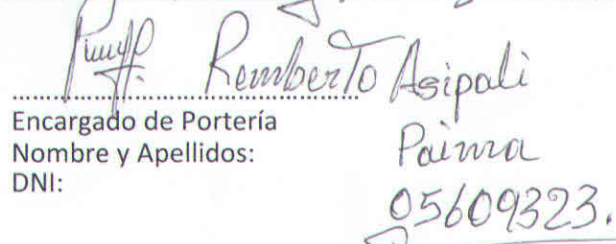 Remberto Asipali
Encargado de Portería
Nombre y Apellidos:
Paima
DNI:
05609323.